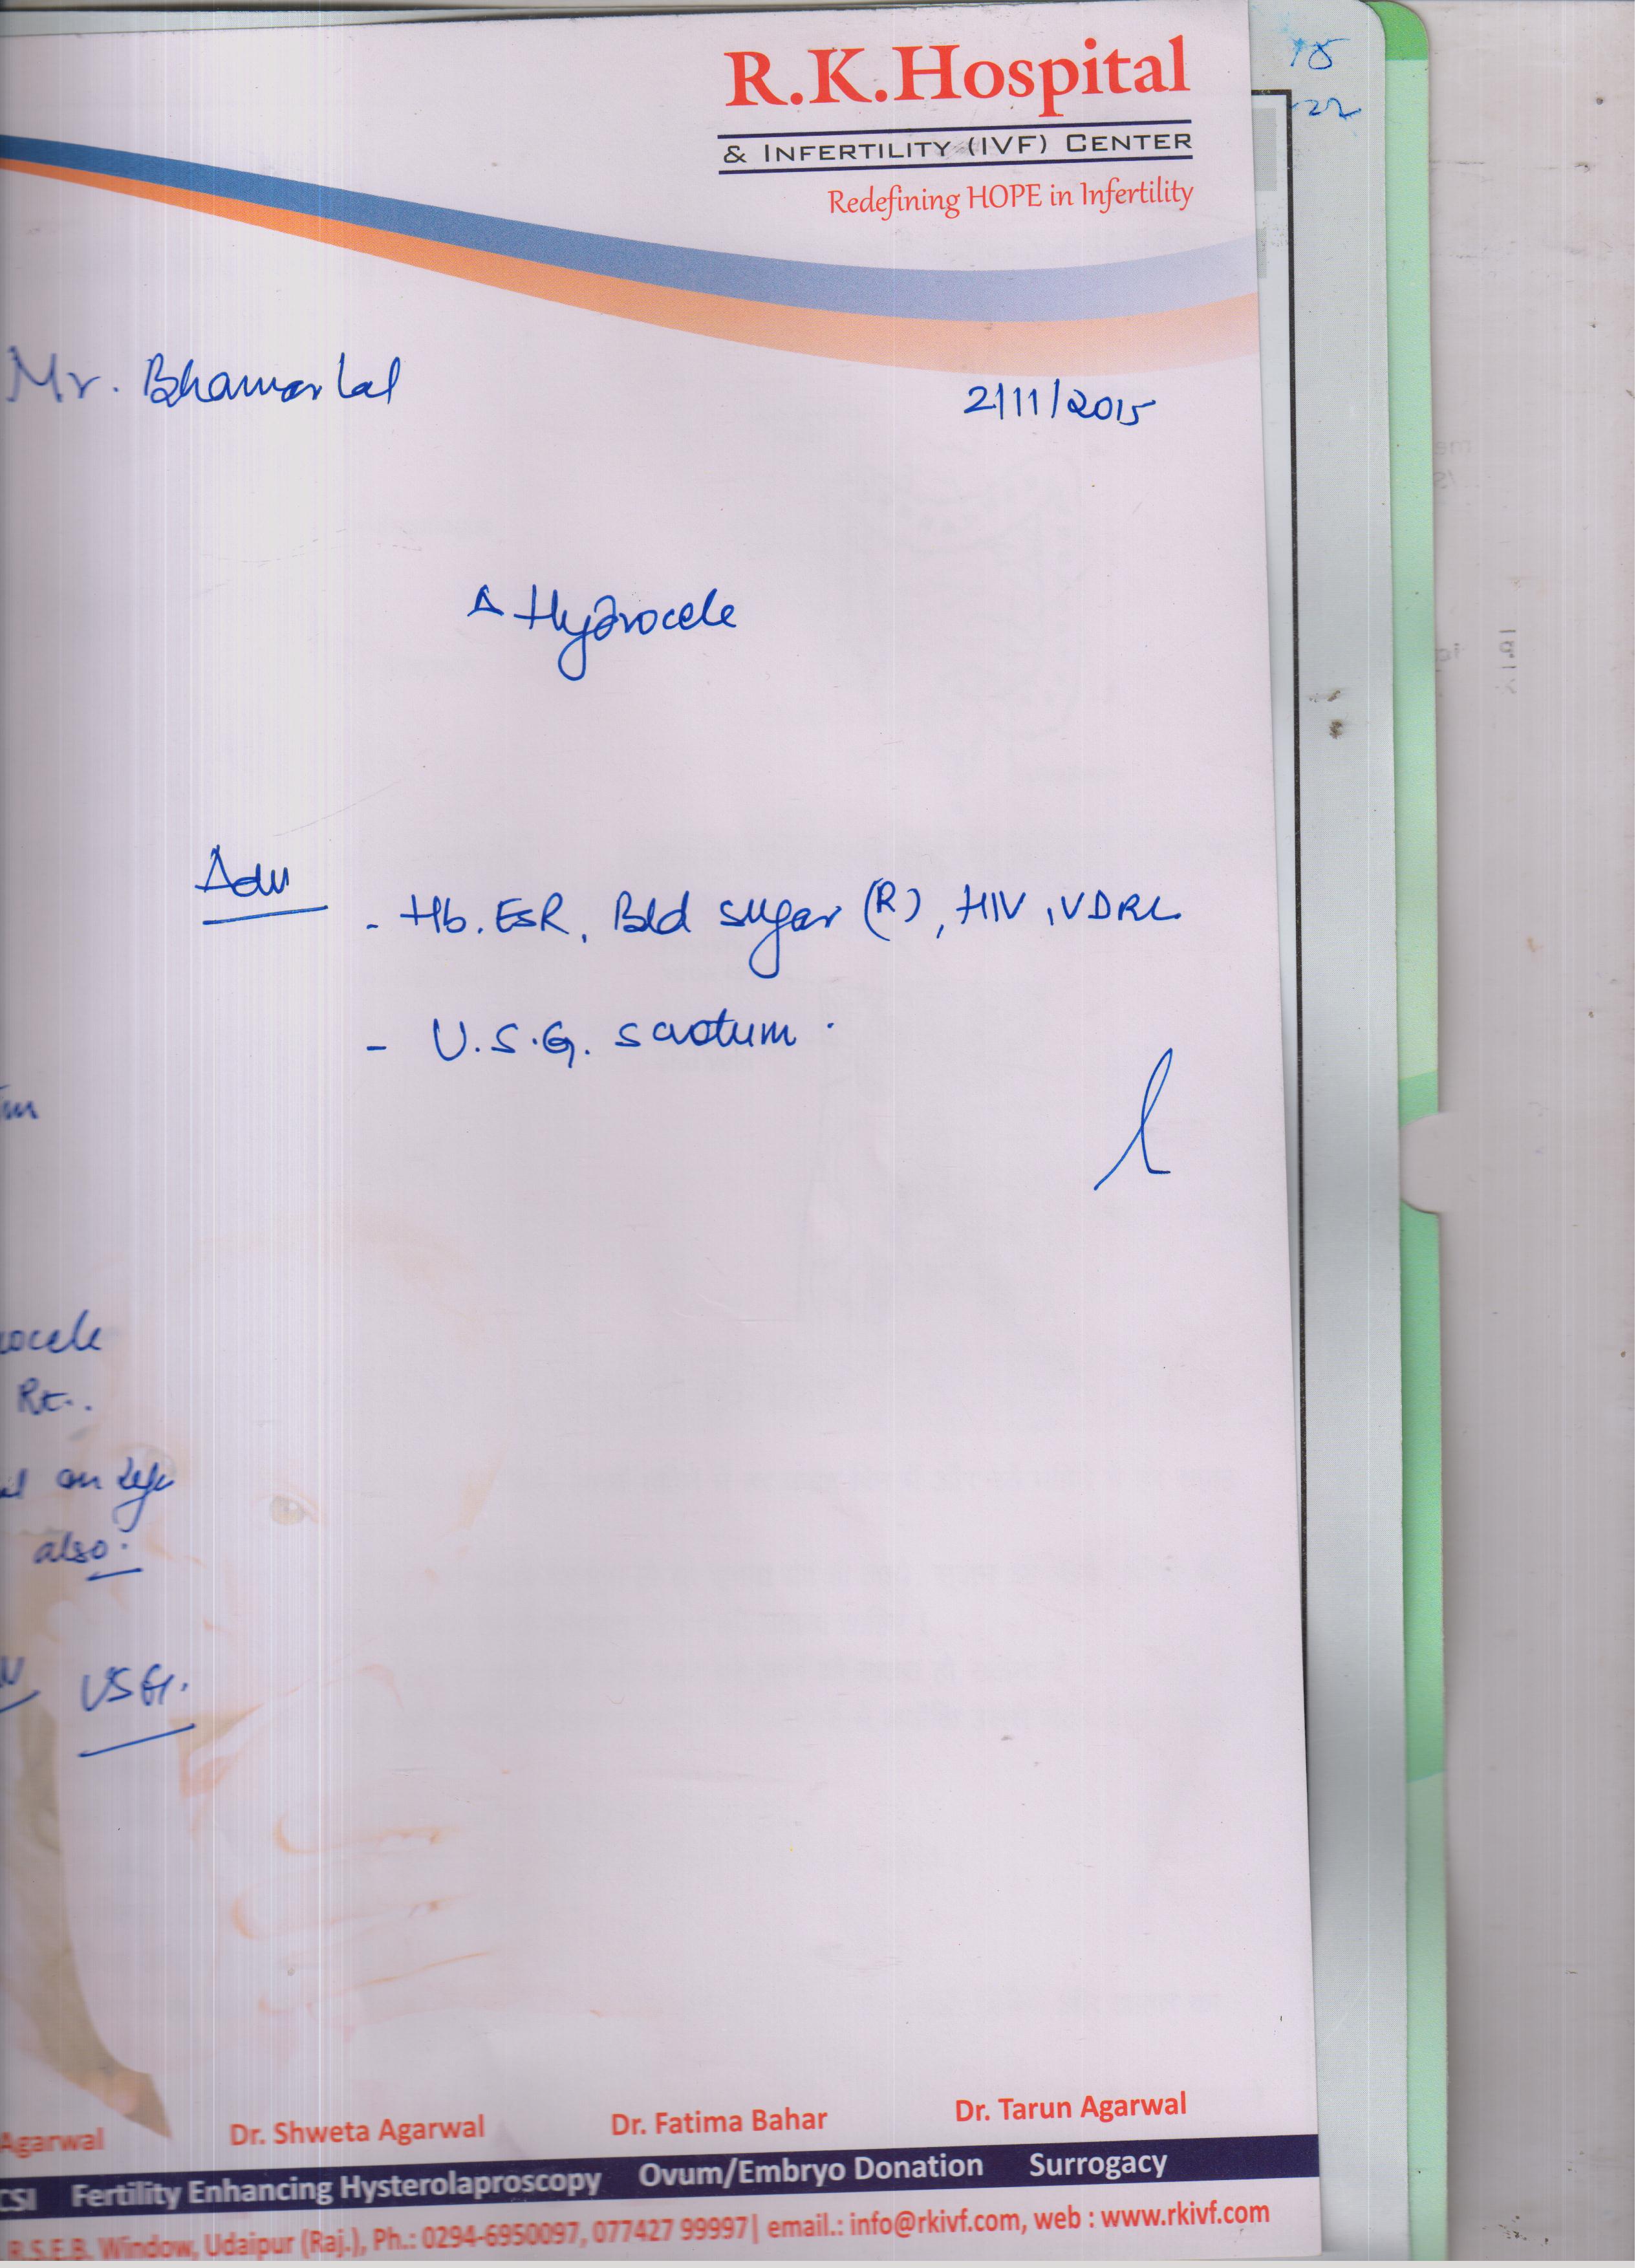 R.K.Hospital
& INFERTILITY (IVF) CENTER
Redefining HOPE in Infertility
Mr. Bhawarlal
2/11/2015
Δ Hydrocele
Adv
- Hb. ESR, Bld sugar (R), HIV, VDRL
- U.S.G. scrotum.
ocele
Rt.
also.
USG.
Agarwal Dr. Shweta Agarwal Dr. Fatima Bahar Dr. Tarun Agarwal
CSI Fertility Enhancing Hysterolaproscopy Ovum/Embryo Donation Surrogacy
R.S.E.B. Window, Udaipur (Raj.), Ph.: 0294-6950097, 077427 99997| email.: info@rkivf.com, web : www.rkivf.com